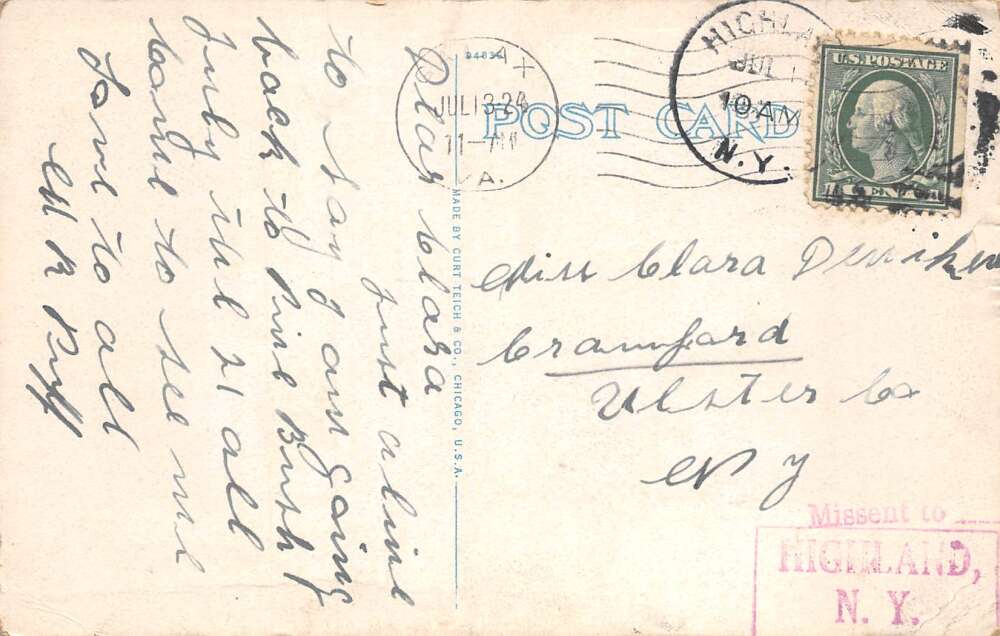 Dear Clara
Just a line
to say I am going
back to Pine Bush
July the 21 all
come to see me
Love to all
M R Ruff
94836
JUL 13 24
11-AM
VA.
POST CARD
MADE BY CURT TEICH & CO., CHICAGO, U.S.A.
HIGHLA
JUL
10 AM
N.Y.
U.S. POSTAGE
Miss Clara
Crawford
Ulster Co
N Y
Missent to
HIGHLAND,
N. Y.